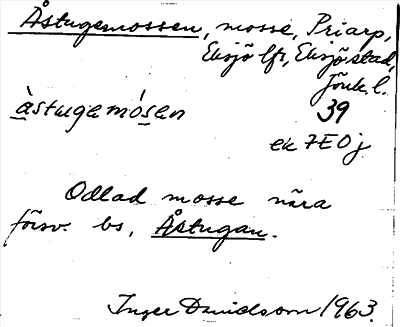 Åstugemossen, mosse, Priarp,
Eksjö lfs, Eksjö stad,
Jönk. l.
àstugemósen 39
ek 7E0j
Odlad mosse nära
försv. bs, Åstugan.
Inger Danielsson 1963.